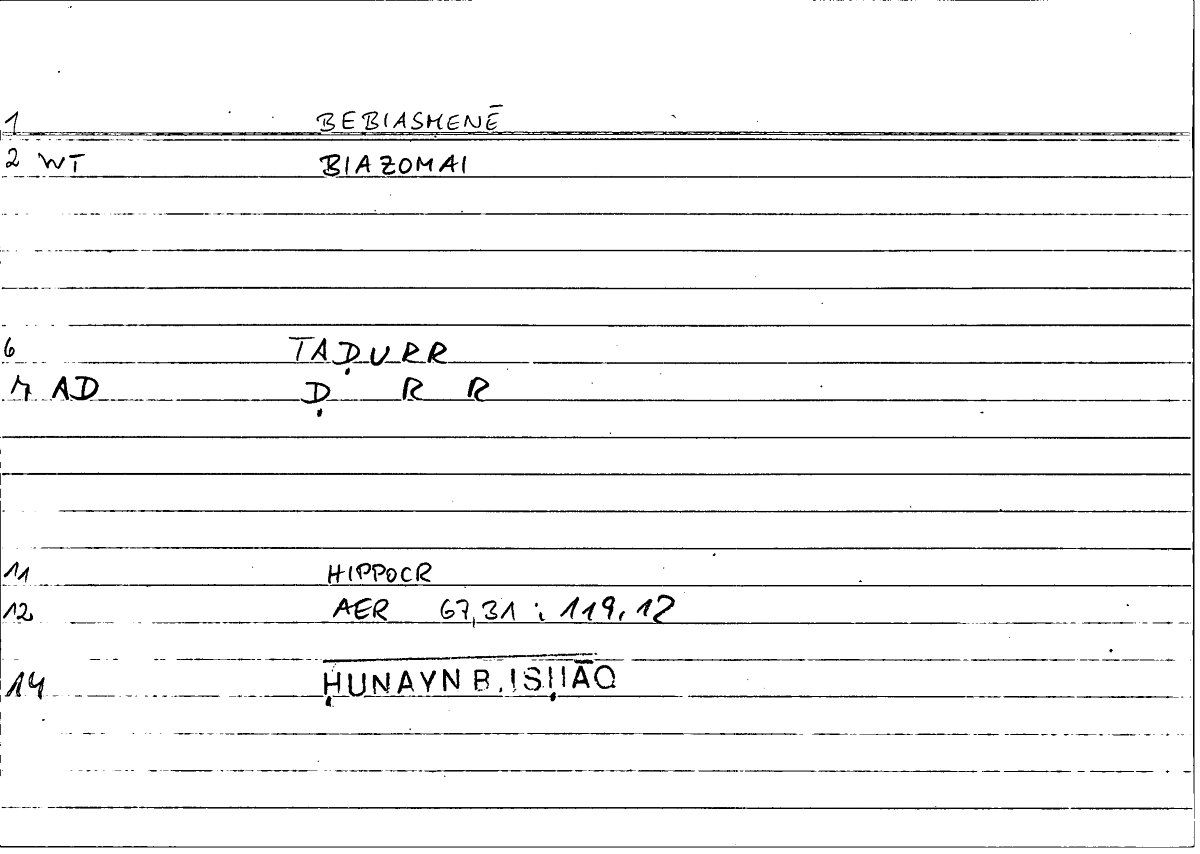 1 BEBIASMENĒ
2 WT BIAZOMAI
6 TAḌURR
7 AD Ḍ R R
11 HIPPOCR
12 AER 67,31 ; 119,12
14 ḤUNAYN B. ISḤĀQ